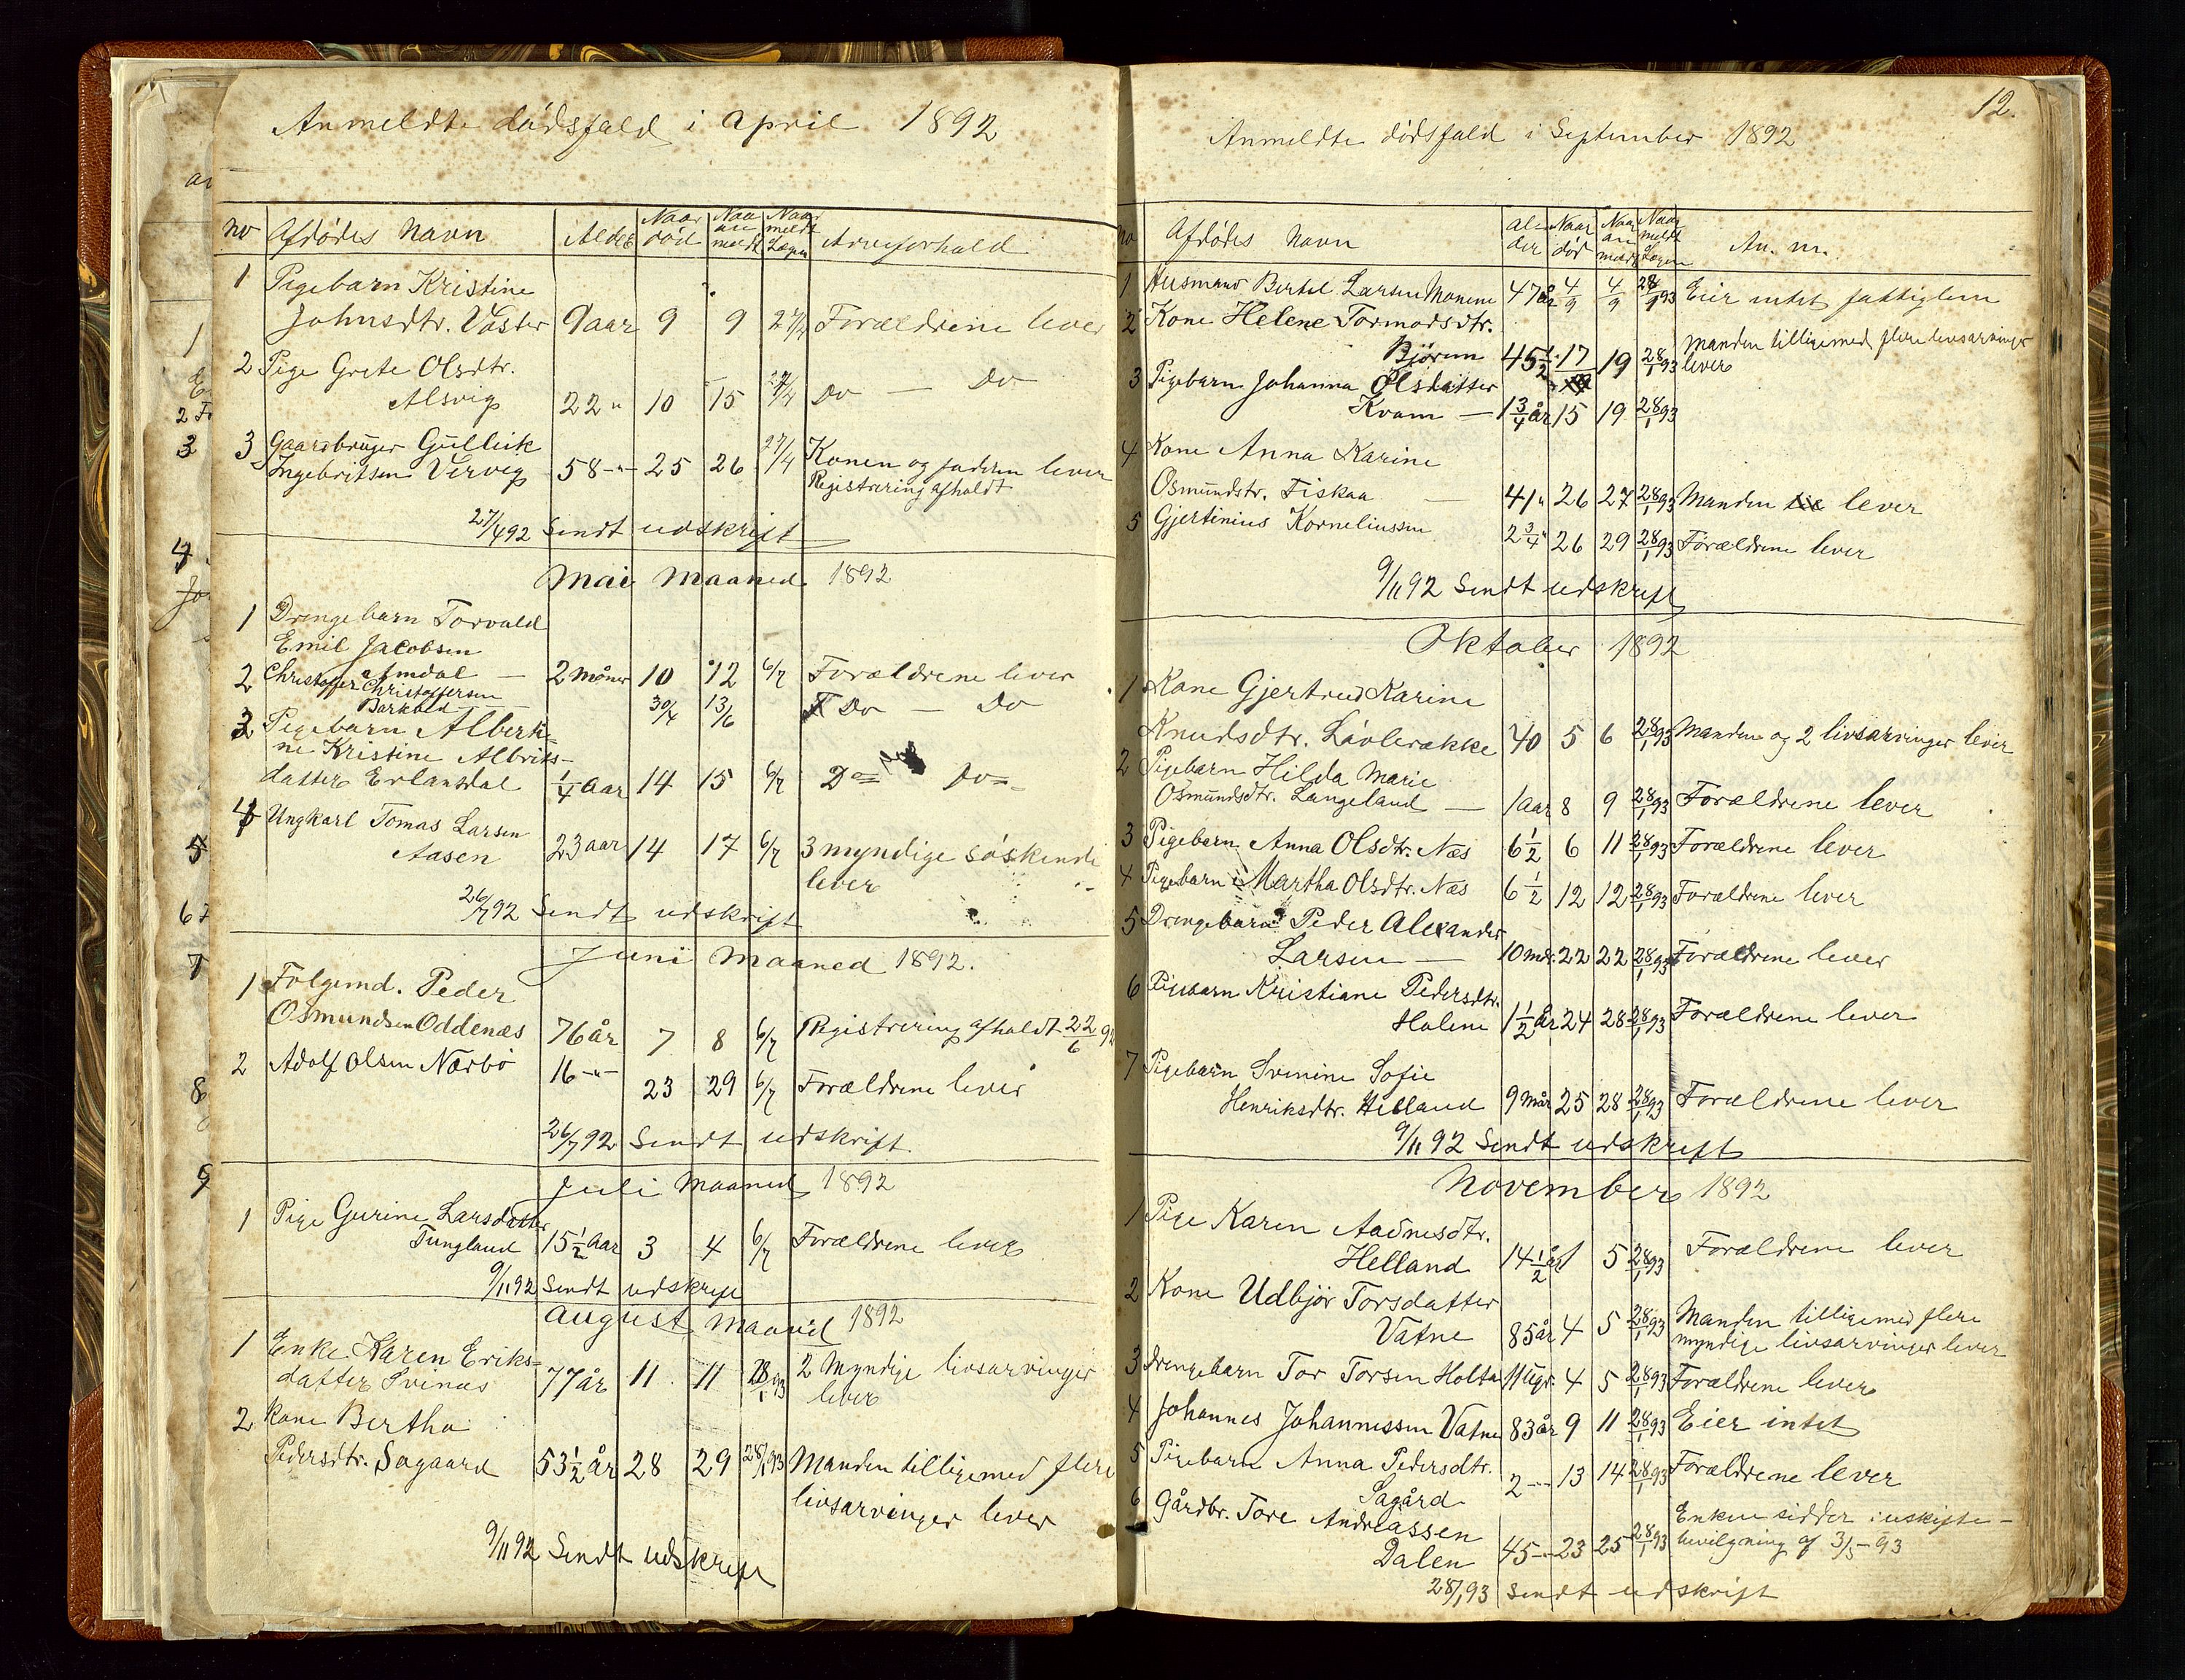 Anmeldte dødsfald i April 1892
no Afdødes Navn Alder Naar død Naar an meldt Naar meldt Lægen Arveforhold
1 Pigebarn Kristine
Johnsdtr. Våster 9 aar 9 9 27/4 Forældrene lever
2 Pige Grete Olsdtr.
Alsvig 22 " 10 15 27/4 Do — Do
3 Gaardbruger Gullick
Ingebritsen Vervig 58 -"- 25 26 27/4 Konen og faderen lever
Registrering afholdt
27/4 92 Sendt udskrift
Mai Maaned 1892
1 Drengebarn Torvald
Emil Jacobsen
Amdal — 2 måner 10 12 6/7 Forældrene lever
2 Christoffer Christoffersen
Barkved 30/4 13/6 Do — Do
3 Pigebarn Alberti-
ne Kristine Albriks-
datter Erlandsdal 1/4 aar 14 15 6/7 Do Do
4 Ungkarl Tomas Larsen
Aasen 23 aar 14 17 6/7 3 myndige søskende
lever
26/7 92 Sendt udskrift
Juni Maaned 1892.
1 Folgemd. Peder
Osmundsen Oddenæs 76 år 7 8 6/7 Registrering afholdt 22/6 92
2 Adolf Olsen Nærbø 16 -"- 23 29 6/7 Forældrene lever
26/7 92 Sendt udskrift.
Juli Maaned 1892
1 Pige Gurine Larsdatter
Tungland 15 1/2 aar 3 4 6/7 Forældrene lever
9/11 92 Sendt udskrift
August Maaned 1892
1 Enke Karen Eriks-
datter Svinæs 77 år 11 11 28/1 93 2 Myndige livsarvinger
lever
2 Kone Bertha
Pedersdtr. Sagaard 53 1/2 år 28 29 28/1 93 Manden tilligemed flere
livsarvinger lever
9/11 92 Sendt udskrift
12.
Anmeldte dødsfald i September 1892
no Afdødes Navn Al- der Naar død Naar an meldt Naar meldt Lægen An. m.
1 Husmand Bertel Larsen Monene 47 år 4/9 4/9 28/1 93 Eier intet fattiglem
2 Kone Helene Tormodsdtr.
Bjørum 45 1/2 17 19 28/1 93 Manden tilligemed flere livsarvinger
lever
3 Pigebarn Johanna Olsdatter
Kvam — 1 3/4 år 15 19 28/1 93
4 Kone Anna Karine
Osmundstr. Fiskaa — 41 " 26 27 28/1 93 Manden lever
5 Gjertinius Korneliussen 2 3/4 " 26 29 28/1 93 Forældrene lever
9/11 92 Sendt udskrift
Oktober 1892
1 Kone Gjertrud Karine
Knudsdtr. Låvlerække 40 5 6 28/1 93 Manden og 2 livsarvinger lever
2 Pigebarn Hilda Marie
Osmundsdtr. Langeland — 1 aar 8 9 28/1 93 Forældrene lever
3 Pigebarn Anna Olsdtr. Næs 6 1/2 6 11 28/1 93 Forældrene lever
4 Pigebarn Martha Olsdtr. Næs 6 1/2 12 12 28/1 93 Forældrene lever
5 Drengebarn Peder Alexander
Larsen — 10 mdr. 22 22 28/1 93 Forældrene lever
6 Pigebarn Kristiane Pedersdtr.
Holene 1 1/2 år 24 28 28/1 93 Forældrene lever
7 Pigebarn Svenine Sofie
Henriksdtr. Helland 9 mår 25 28 28/1 93 Forældrene lever
9/11 92 Sendt udskrift
November 1892
1 Pige Karen Aadnesdtr.
Helland 14 1/2 år 1 5 28/1 93 Forældrene lever
2 Kone Udbjør Torsdatter
Vatne 85 år 4 5 28/1 93 Manden tilligemed flere
myndige livsarvinger lever
3 Drengebarn Tor Torsen Holta 11 Ugr. 4 5 28/1 93 Forældrene lever
4 Johannes Johannessen Vatne 83 år 9 11 28/1 93 Eier intet
5 Pigebarn Anna Pedersdtr.
Sagård 2 -"- 13 14 28/1 93 Forældrene lever
6 Gårdbr. Tore Andreassen
Dalen 45 -"- 23 25 28/1 93 Enken sidder i uskifte-
bevilgning af 3/5 - 93
28/1 93 Sendt udskrift